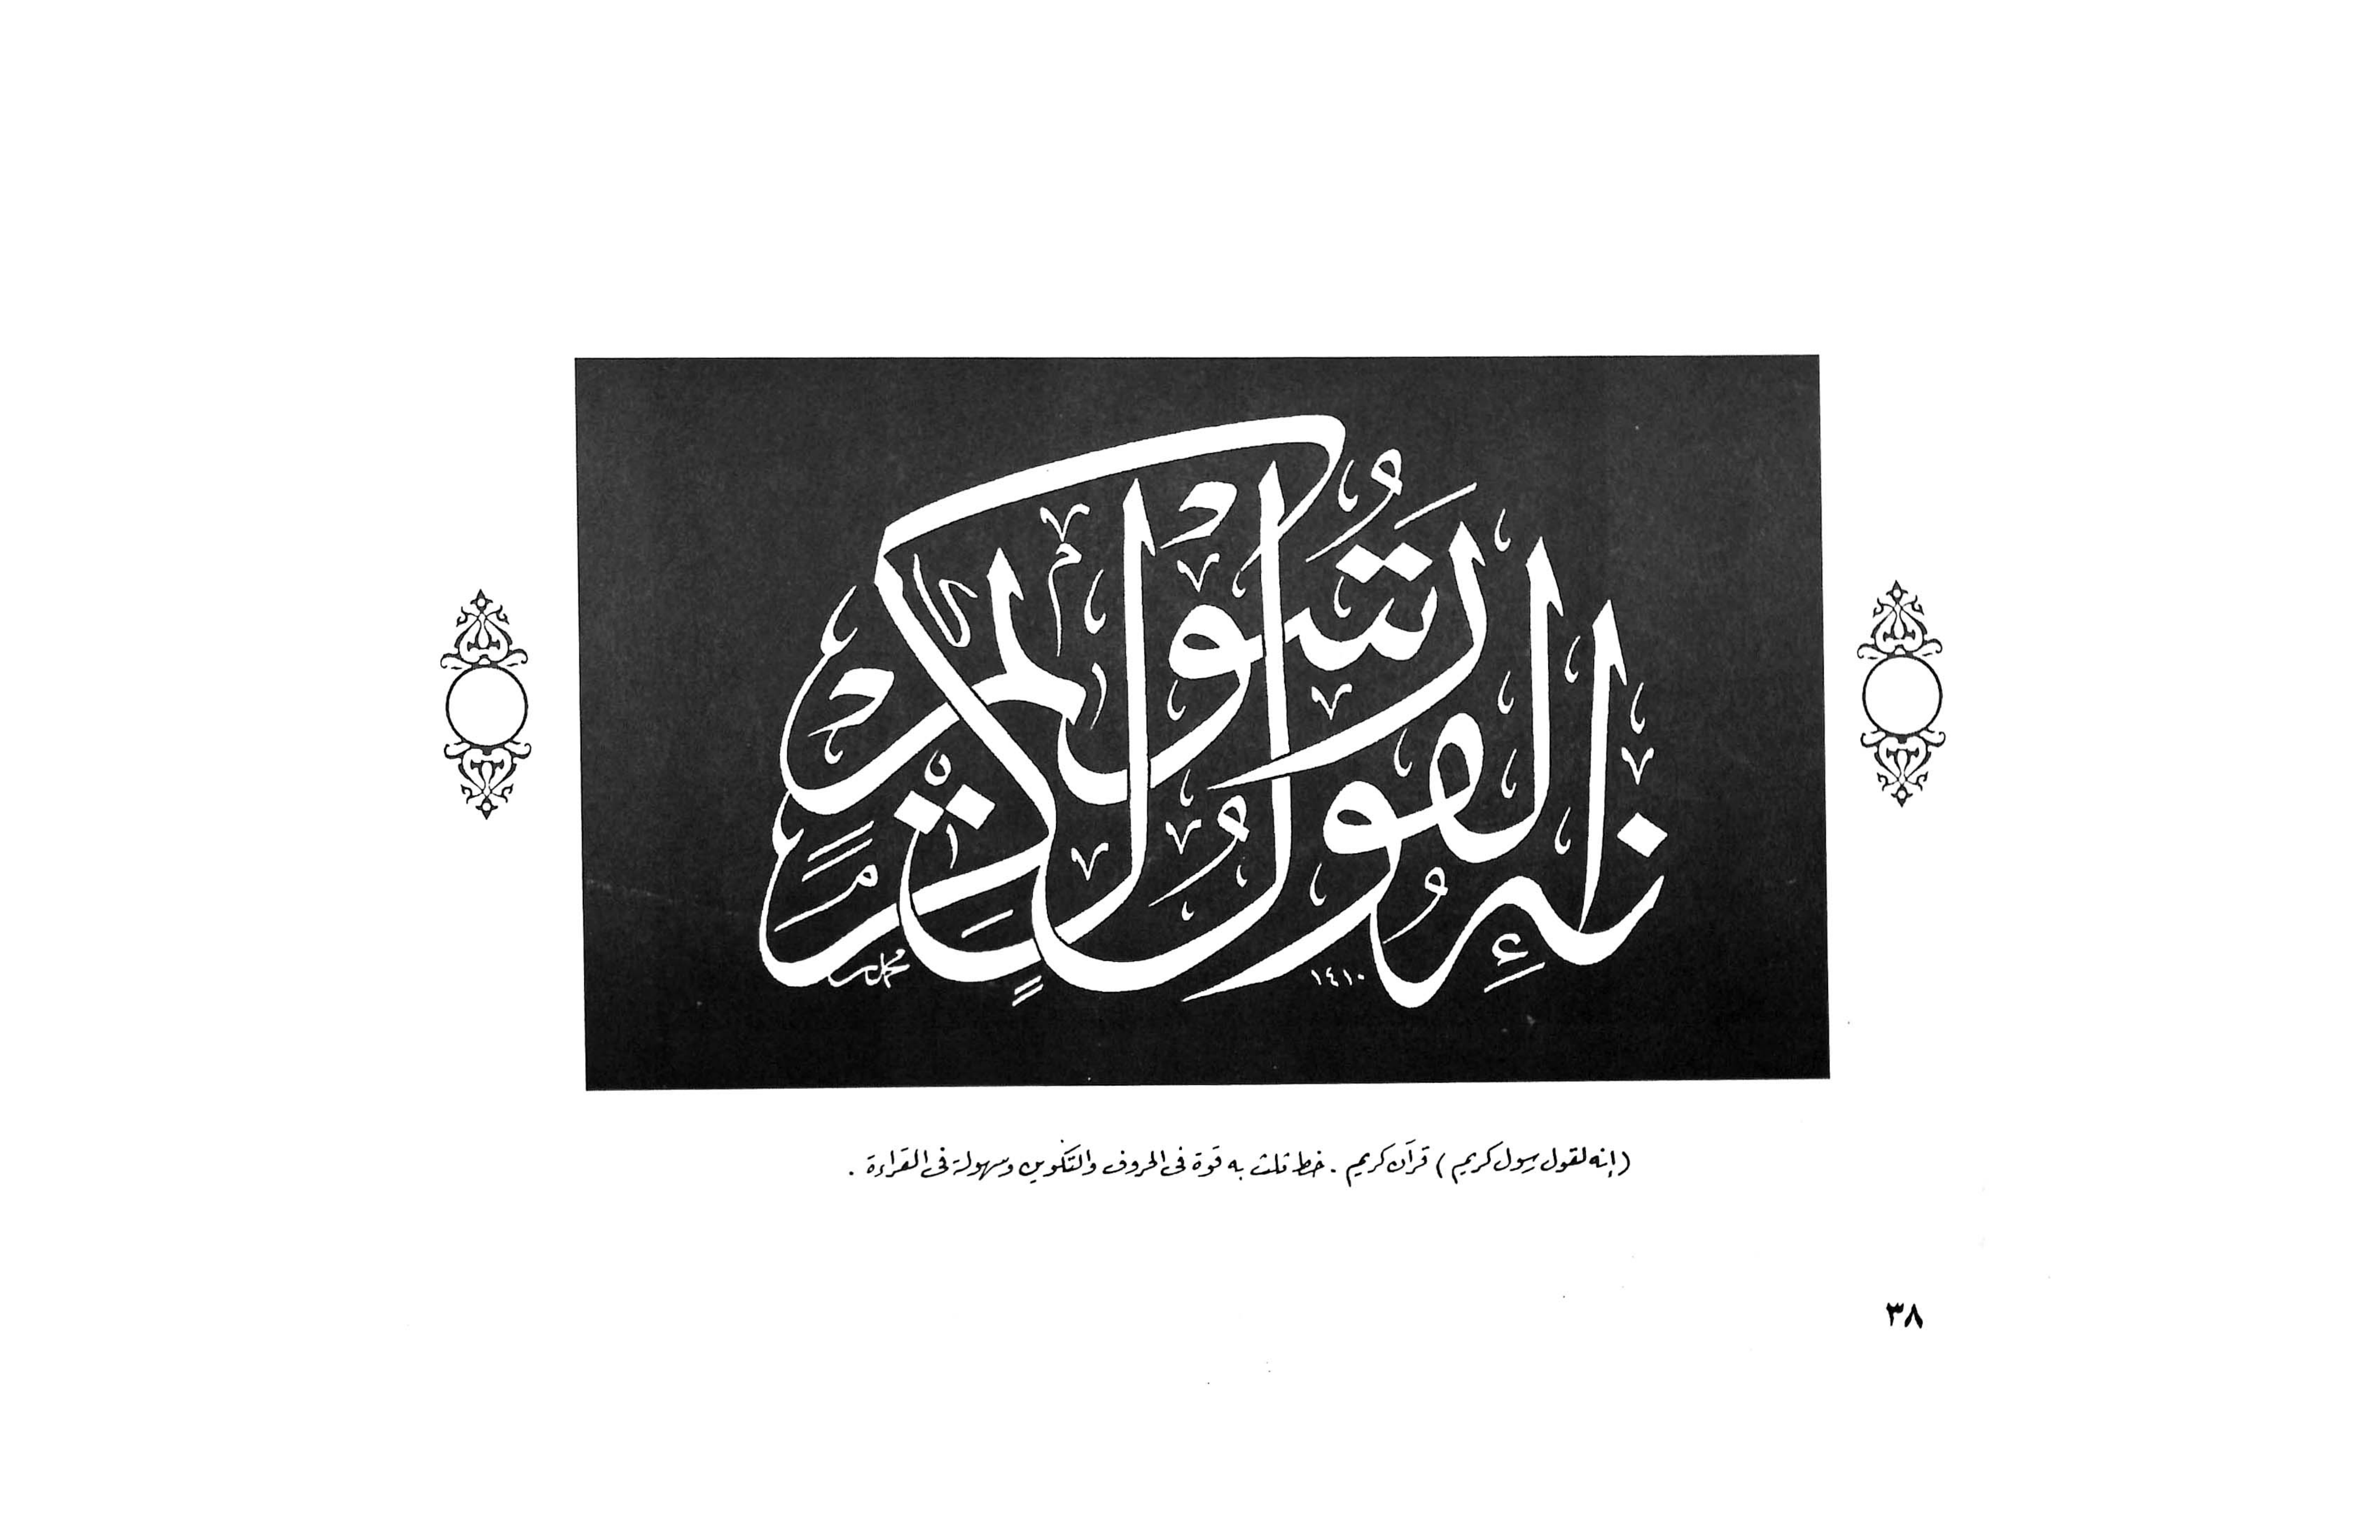 إِنَّهُ لَقَوْلُ رَسُولٍ كَرِيمٍ
١٤١٠
(إنه لقول رسول كريم) قرآن كريم . خط ثلث به قوة فى الحروف والتكوين وسهولة فى القراءة .
٣٨